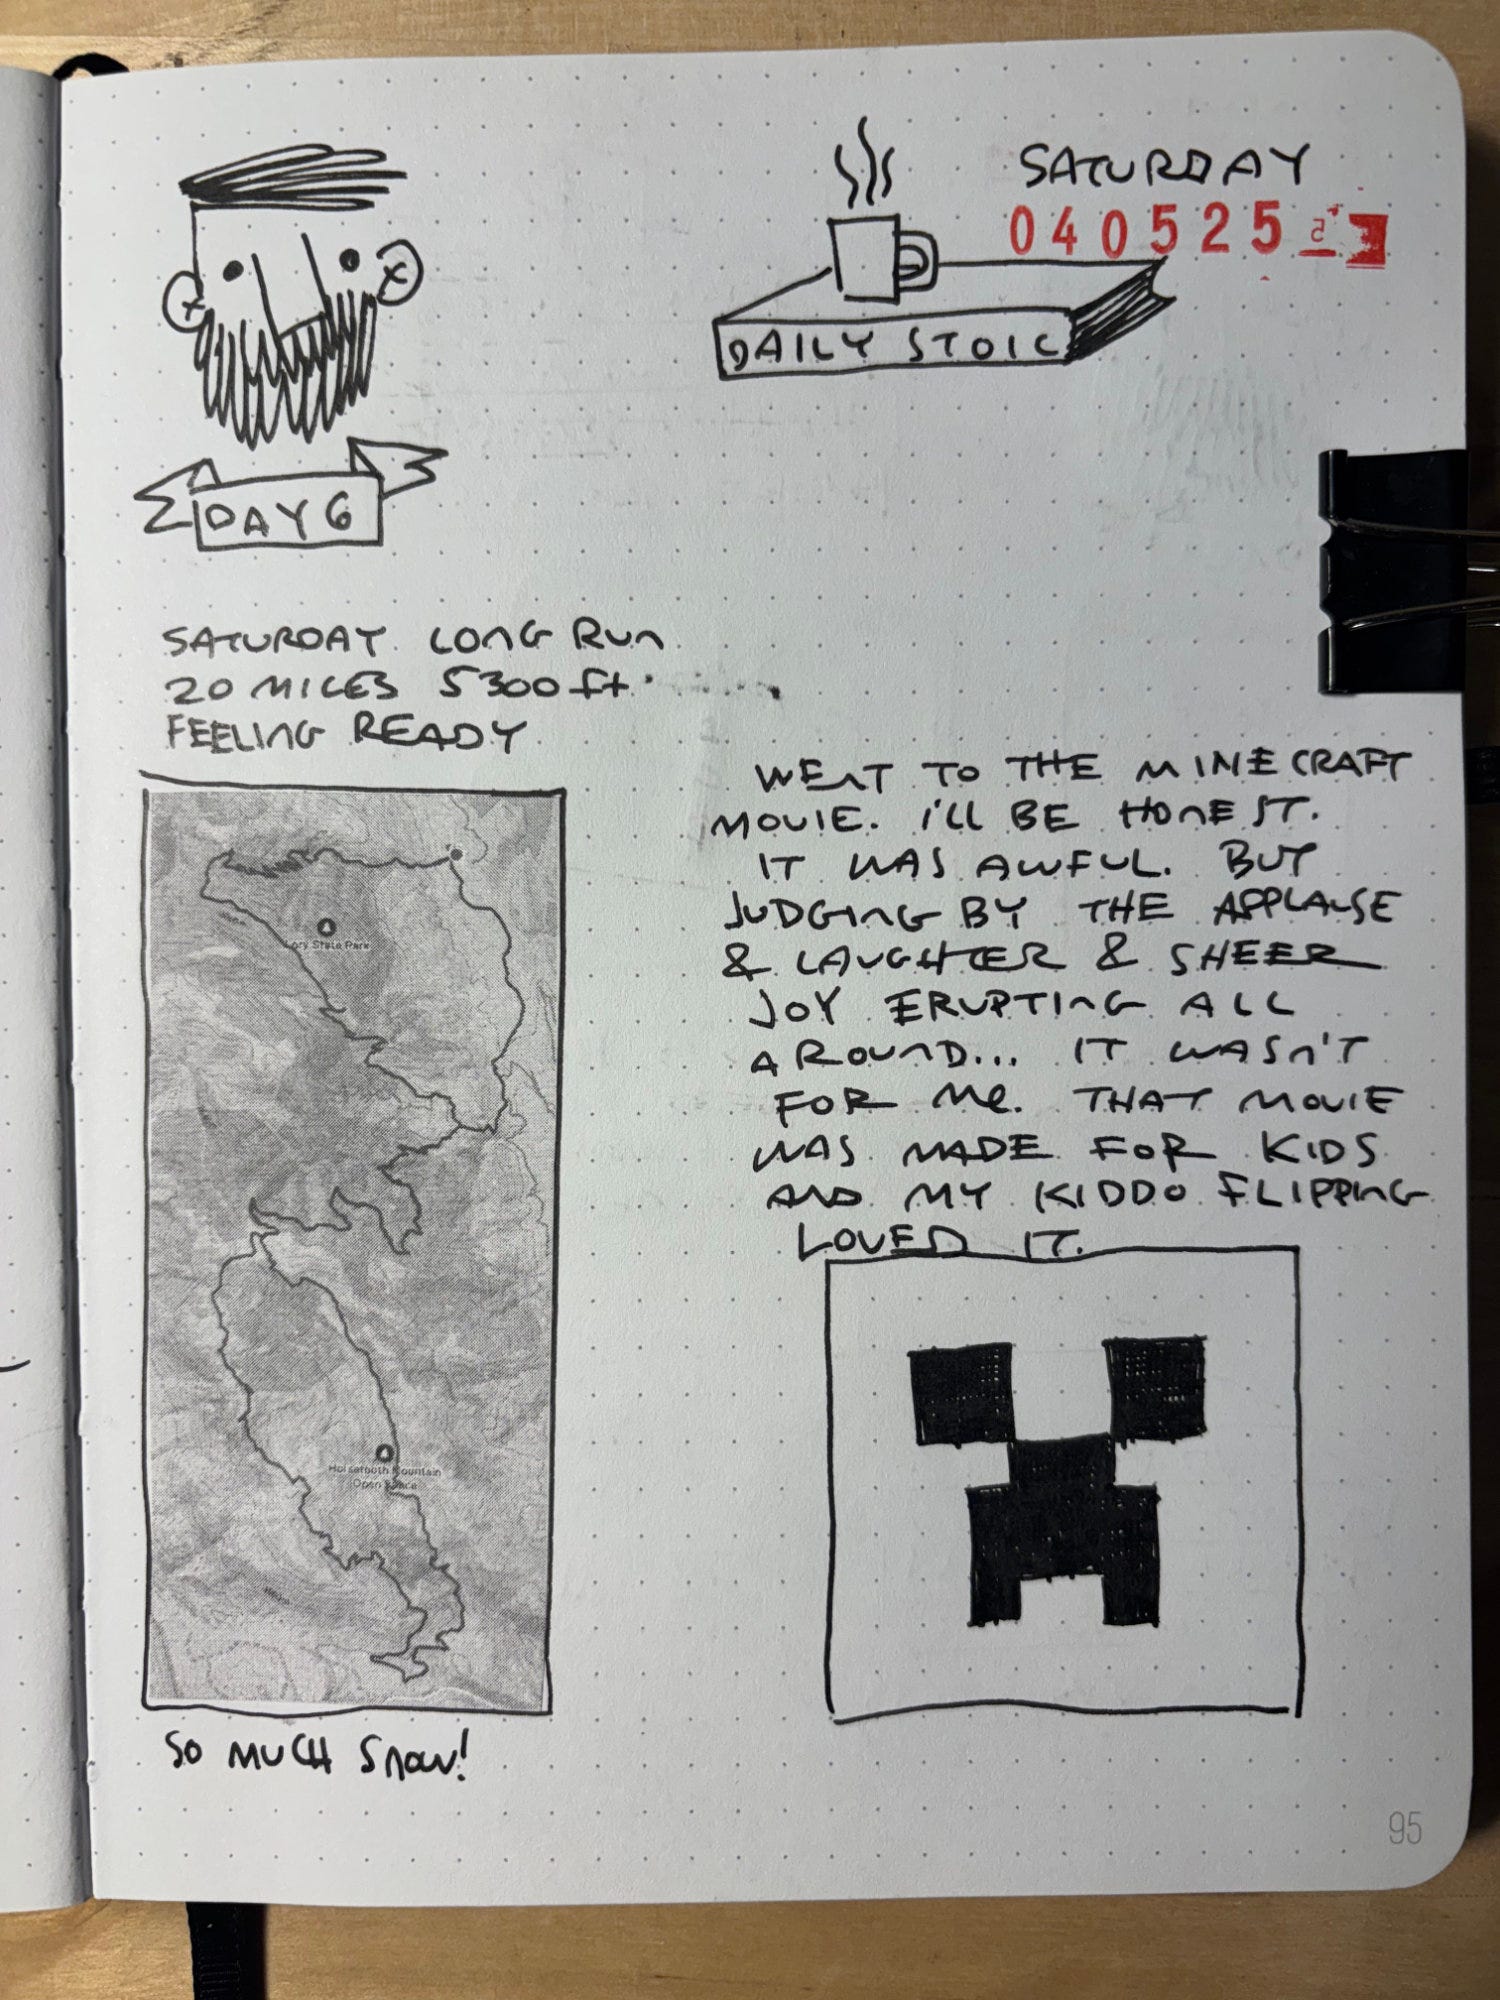 SATURDAY
040525
DAILY STOIC
DAY 6
SATURDAY LONG RUN
20 MILES 5300 ft
FEELING READY
Lory State Park
Horsetooth Mountain
Open Space
SO MUCH SNOW!
WENT TO THE MINECRAFT
MOVIE. I'LL BE HONEST.
IT WAS AWFUL. BUT
JUDGING BY THE APPLAUSE
& LAUGHTER & SHEER
JOY ERUPTING ALL
AROUND... IT WASN'T
FOR Me. THAT MOVIE
WAS MADE FOR KIDS
AND MY KIDDO FLIPPING
LOVED IT.
95